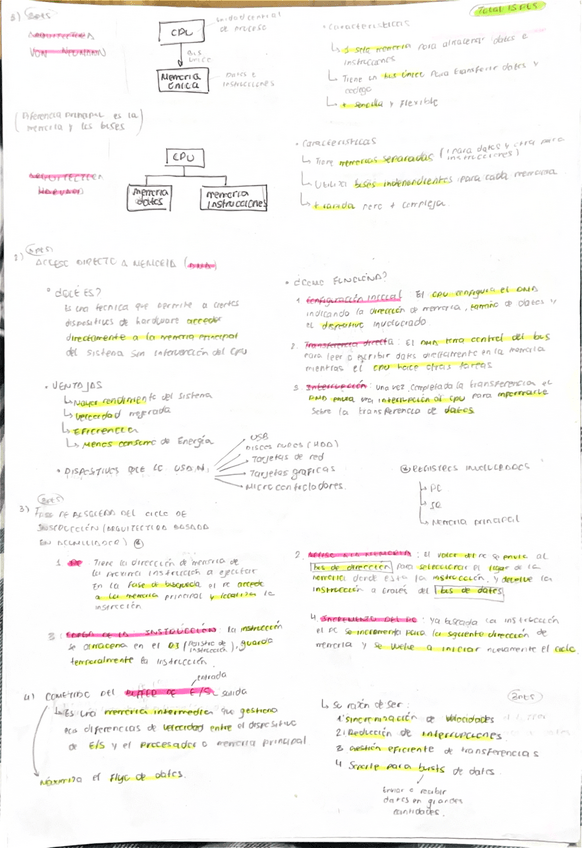 TOTAL 15 PTS
3PTS
ARQUITECTURA
VON NEUMANN
CPU
unidad central
de proceso
BUS
único
Memoria
única
DATOS E
INSTRUCCIONES
• Características
↳ 1 sola memoria para almacenar datos e
instrucciones
↳ Tiene un bus único para transferir datos y
código
↳ + sencilla y flexible
(Diferencia principal es la
memoria y los buses)
ARQUITECTURA
HARVARD
CPU
memoria
datos
memoria
instrucciones
• Características
↳ Tiene memorias separadas (1 para datos y otra para
instrucciones)
↳ Utiliza buses independientes para cada memoria
↳ + rápida pero + compleja.
2)
ACCESO DIRECTO A MEMORIA
• ¿QUÉ ES?
Es una técnica que permite a ciertos
dispositivos de hardware acceder
directamente a la memoria principal
del sistema sin intervención del CPU
• VENTAJAS
↳ Mayor rendimiento del sistema
↳ Velocidad mejorada
↳ Eficiencia
↳ Menos consumo de Energía
• DISPOSITIVOS QUE LO USAN:
USB
Discos duros (HDD)
Tarjetas de red
Tarjetas gráficas
Microcontroladores.
• ¿CÓMO FUNCIONA?
1. Configuración inicial: El CPU configura el DMA
indicando la dirección de memoria, tamaño de datos y
el dispositivo involucrado
2. Transferencia directa: El DMA toma control del bus
para leer o escribir datos directamente en la memoria
mientras el CPU hace otras tareas
3. Interrupción: una vez completada la transferencia el
DMA envía una interrupción al CPU para informarle
sobre la transferencia de datos.
REGISTROS INVOLUCRADOS
↳ PC
↳ Memoria principal
3) FASE DE BÚSQUEDA DEL CICLO DE
INSTRUCCIÓN (ARQUITECTURA BASADA
EN ACUMULADOR)
1. PC: Tiene la dirección de memoria de
la próxima instrucción a ejecutar
En la fase de búsqueda el PC accede
a la memoria principal y localiza la
instrucción
2. ACCESO A LA MEMORIA: El valor del PC se envía al
bus de dirección para seleccionar el lugar de la
memoria donde está la instrucción, y devuelve la
instrucción a través del bus de datos
3. CARGA DE LA INSTRUCCIÓN: la instrucción
se almacena en el (registro de
instrucción), guarda
temporalmente la instrucción.
4. INCREMENTO DEL PC: Ya buscada la instrucción
el PC se incrementa para la siguiente dirección de
memoria y se vuelve a iniciar nuevamente el ciclo.
4) COMETIDO DEL BUFFER DE E/S
entrada
salida
↳ Es una memoria intermedia que gestiona
las diferencias de velocidad entre el dispositivo
de E/S y el procesador o memoria principal
Maximiza el flujo de datos.
↳ su razón de ser:
1. Sincronización de velocidades
2. Reducción de interrupciones
3. Gestión eficiente de transferencias
4. Soporte para bursts de datos.
Enviar o recibir
datos en grandes
cantidades.